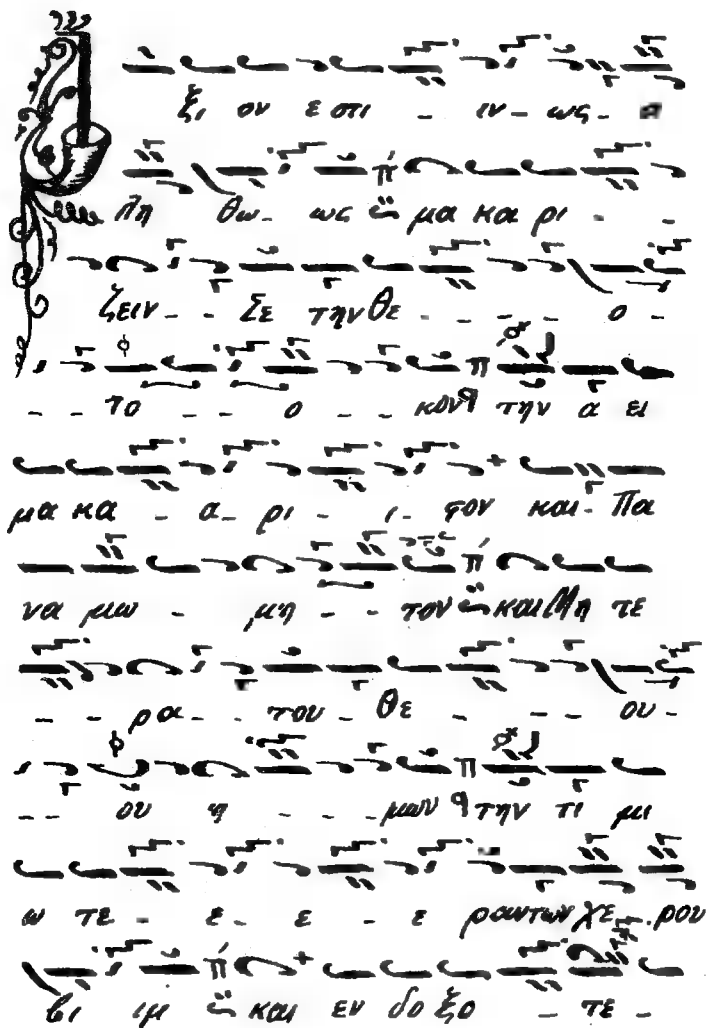 ξι ον ε στι - ιν - ως - α
λη θω - ως μα κα ρι - -
ζειν - - Σε την Θε - - - - - ο -
- - το - - ο - - κον την α ει
μα κα - α - ρι - ι - στον και - Πα
να μω - μη - - τον και Μη τε
- - - ρα - - του - Θε - - - - ου -
- - ου η - - - μων την τι μι
ω τε - ε - ε - ε ραν των χε - ρου
βι ιμ και εν δο ξο - τε -